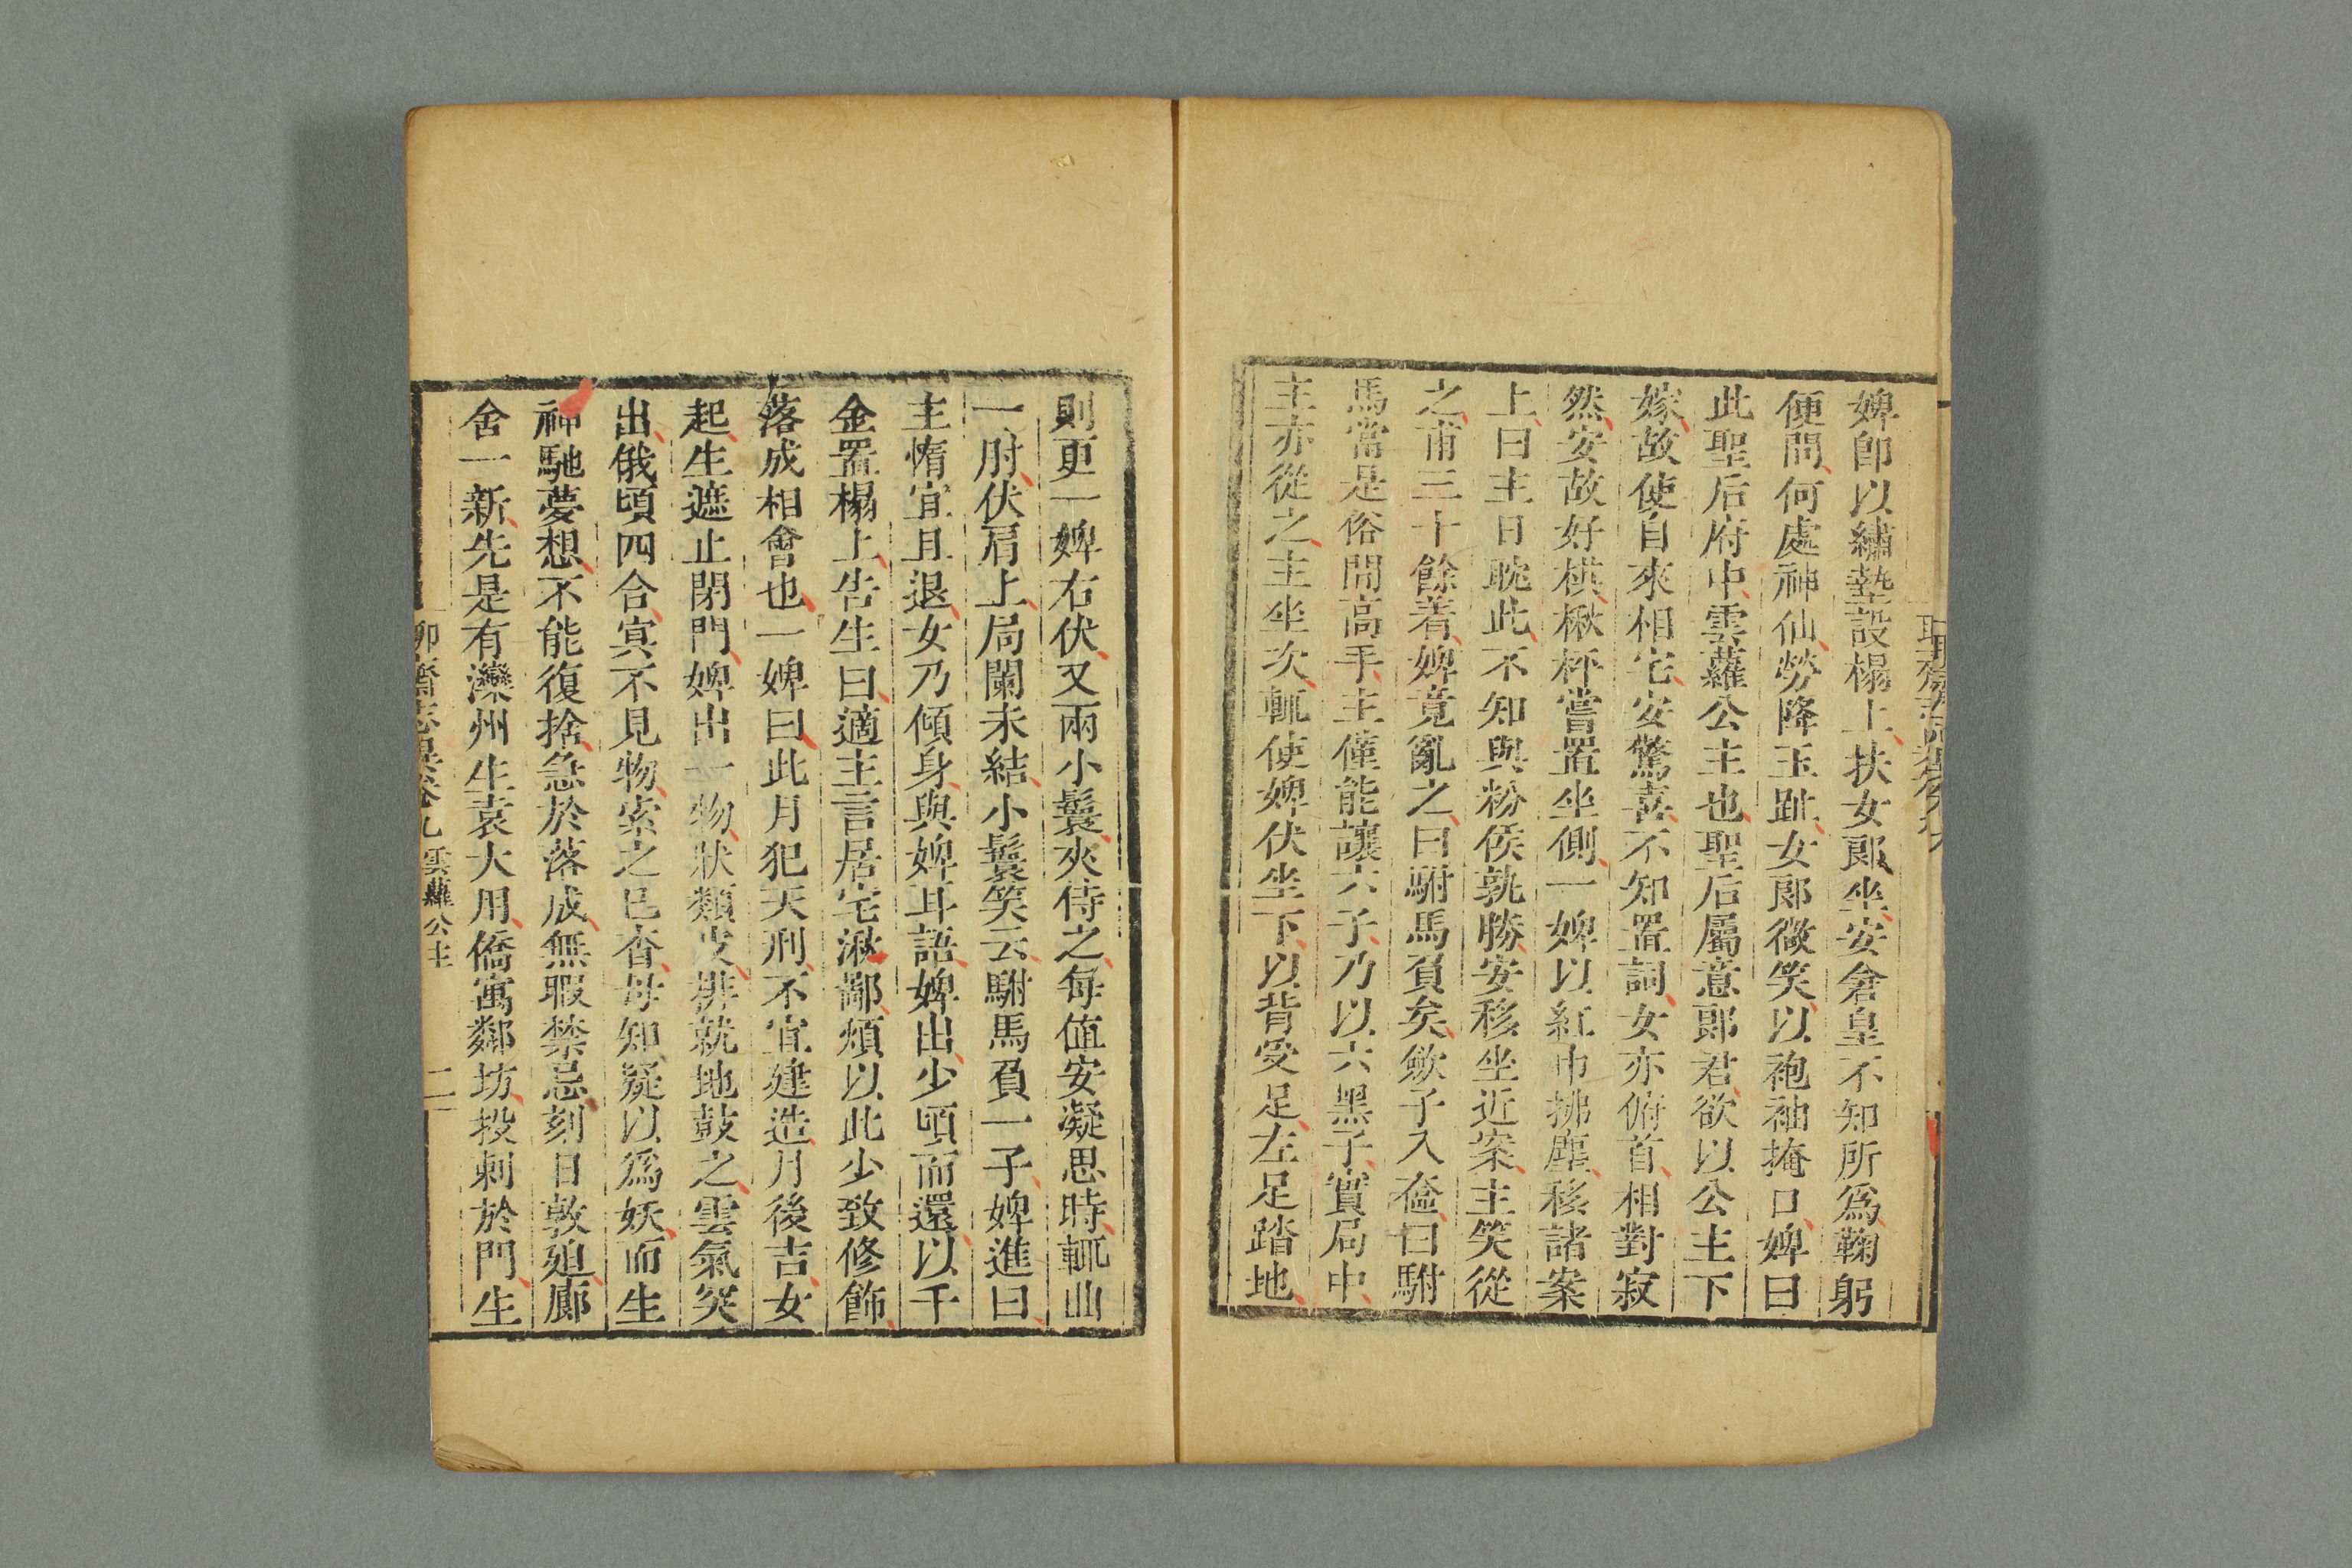 婢卽以繡墊設榻上扶女郞坐安倉皇不知所爲鞠躬
便問何處神仙勞降玉趾女郞微笑以袍袖掩口婢曰
此聖后府中雲蘿公主也聖后屬意郞君欲以公主下
嫁故使自來相宅安驚喜不知置詞女亦俯首相對寂
然安故好棋楸枰嘗置坐側一婢以紅巾拂塵移諸案
上曰主日耽此不知與粉侯孰勝安移坐近案主笑從
之甫三十餘着婢竟亂之曰駙馬負矣斂子入盒曰駙
馬當是俗間高手主僅能讓六子乃以六黑子實局中
主亦從之主坐次輒使婢伏坐下以背受足左足踏地
則更一婢右伏又兩小鬟夾侍之每值安凝思時輒曲
一肘伏肩上局闌未結小鬟笑云駙馬負一子婢進曰
主惰宜且退女乃傾身與婢耳語婢出少頃而還以千
金置榻上告生曰適主言居宅湫鄙煩以此少致修飾
落成相會也一婢曰此月犯天刑不宜建造月後吉女
起生遮止閉門婢出一物狀類皮排就地鼓之雲氣突
出俄頃四合冥不見物索之已杳母知疑以爲妖而生
神馳夢想不能復捨急於落成無暇禁忌刻日敦廹廊
舍一新先是有灤州生袁大用僑寓鄰坊投刺於門生
聊齋志異卷九 雲蘿公主 二